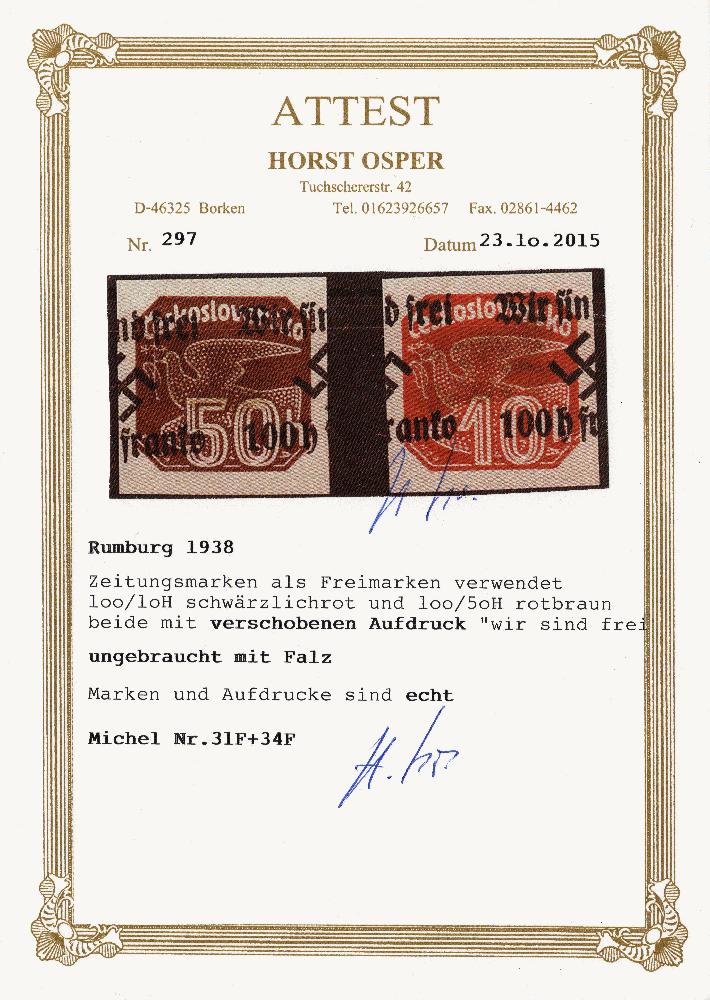 ATTEST
HORST OSPER
Tuchschererstr. 42
D-46325 Borken Tel. 01623926657 Fax. 02861-4462
Nr. 297 Datum 23.1o.2015
nd frei Wir sin
d frei Wir sin
franko 100 h
ranko 100 h fr
50
10
Rumburg 1938
Zeitungsmarken als Freimarken verwendet
loo/loH schwärzlichrot und loo/5oH rotbraun
beide mit verschobenen Aufdruck "wir sind frei
ungebraucht mit Falz
Marken und Aufdrucke sind echt
Michel Nr.31F+34F